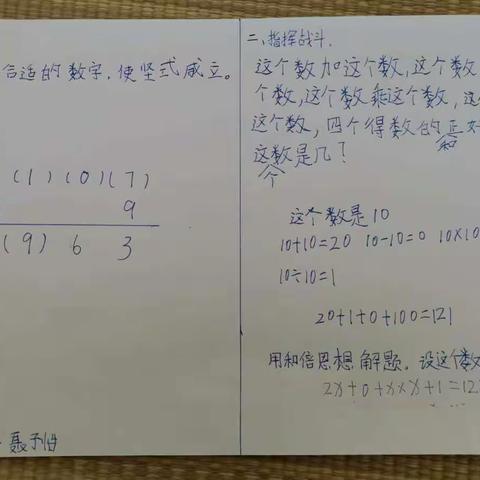 合适的数字,使坚式成立。
(1)(0)(7)
9
(9) 6 3
聂予旧
二、指挥战斗.
这个数加这个数,这个数
个数,这个数乘这个数,这
这个数,四个得数的和正好
这个数是几?
这个数是10
10+10=20 10-10=0 10×10
10÷10=1
20+1+0+100=121
用和倍思想解题。设这个数
2x+0+x×x+1=12